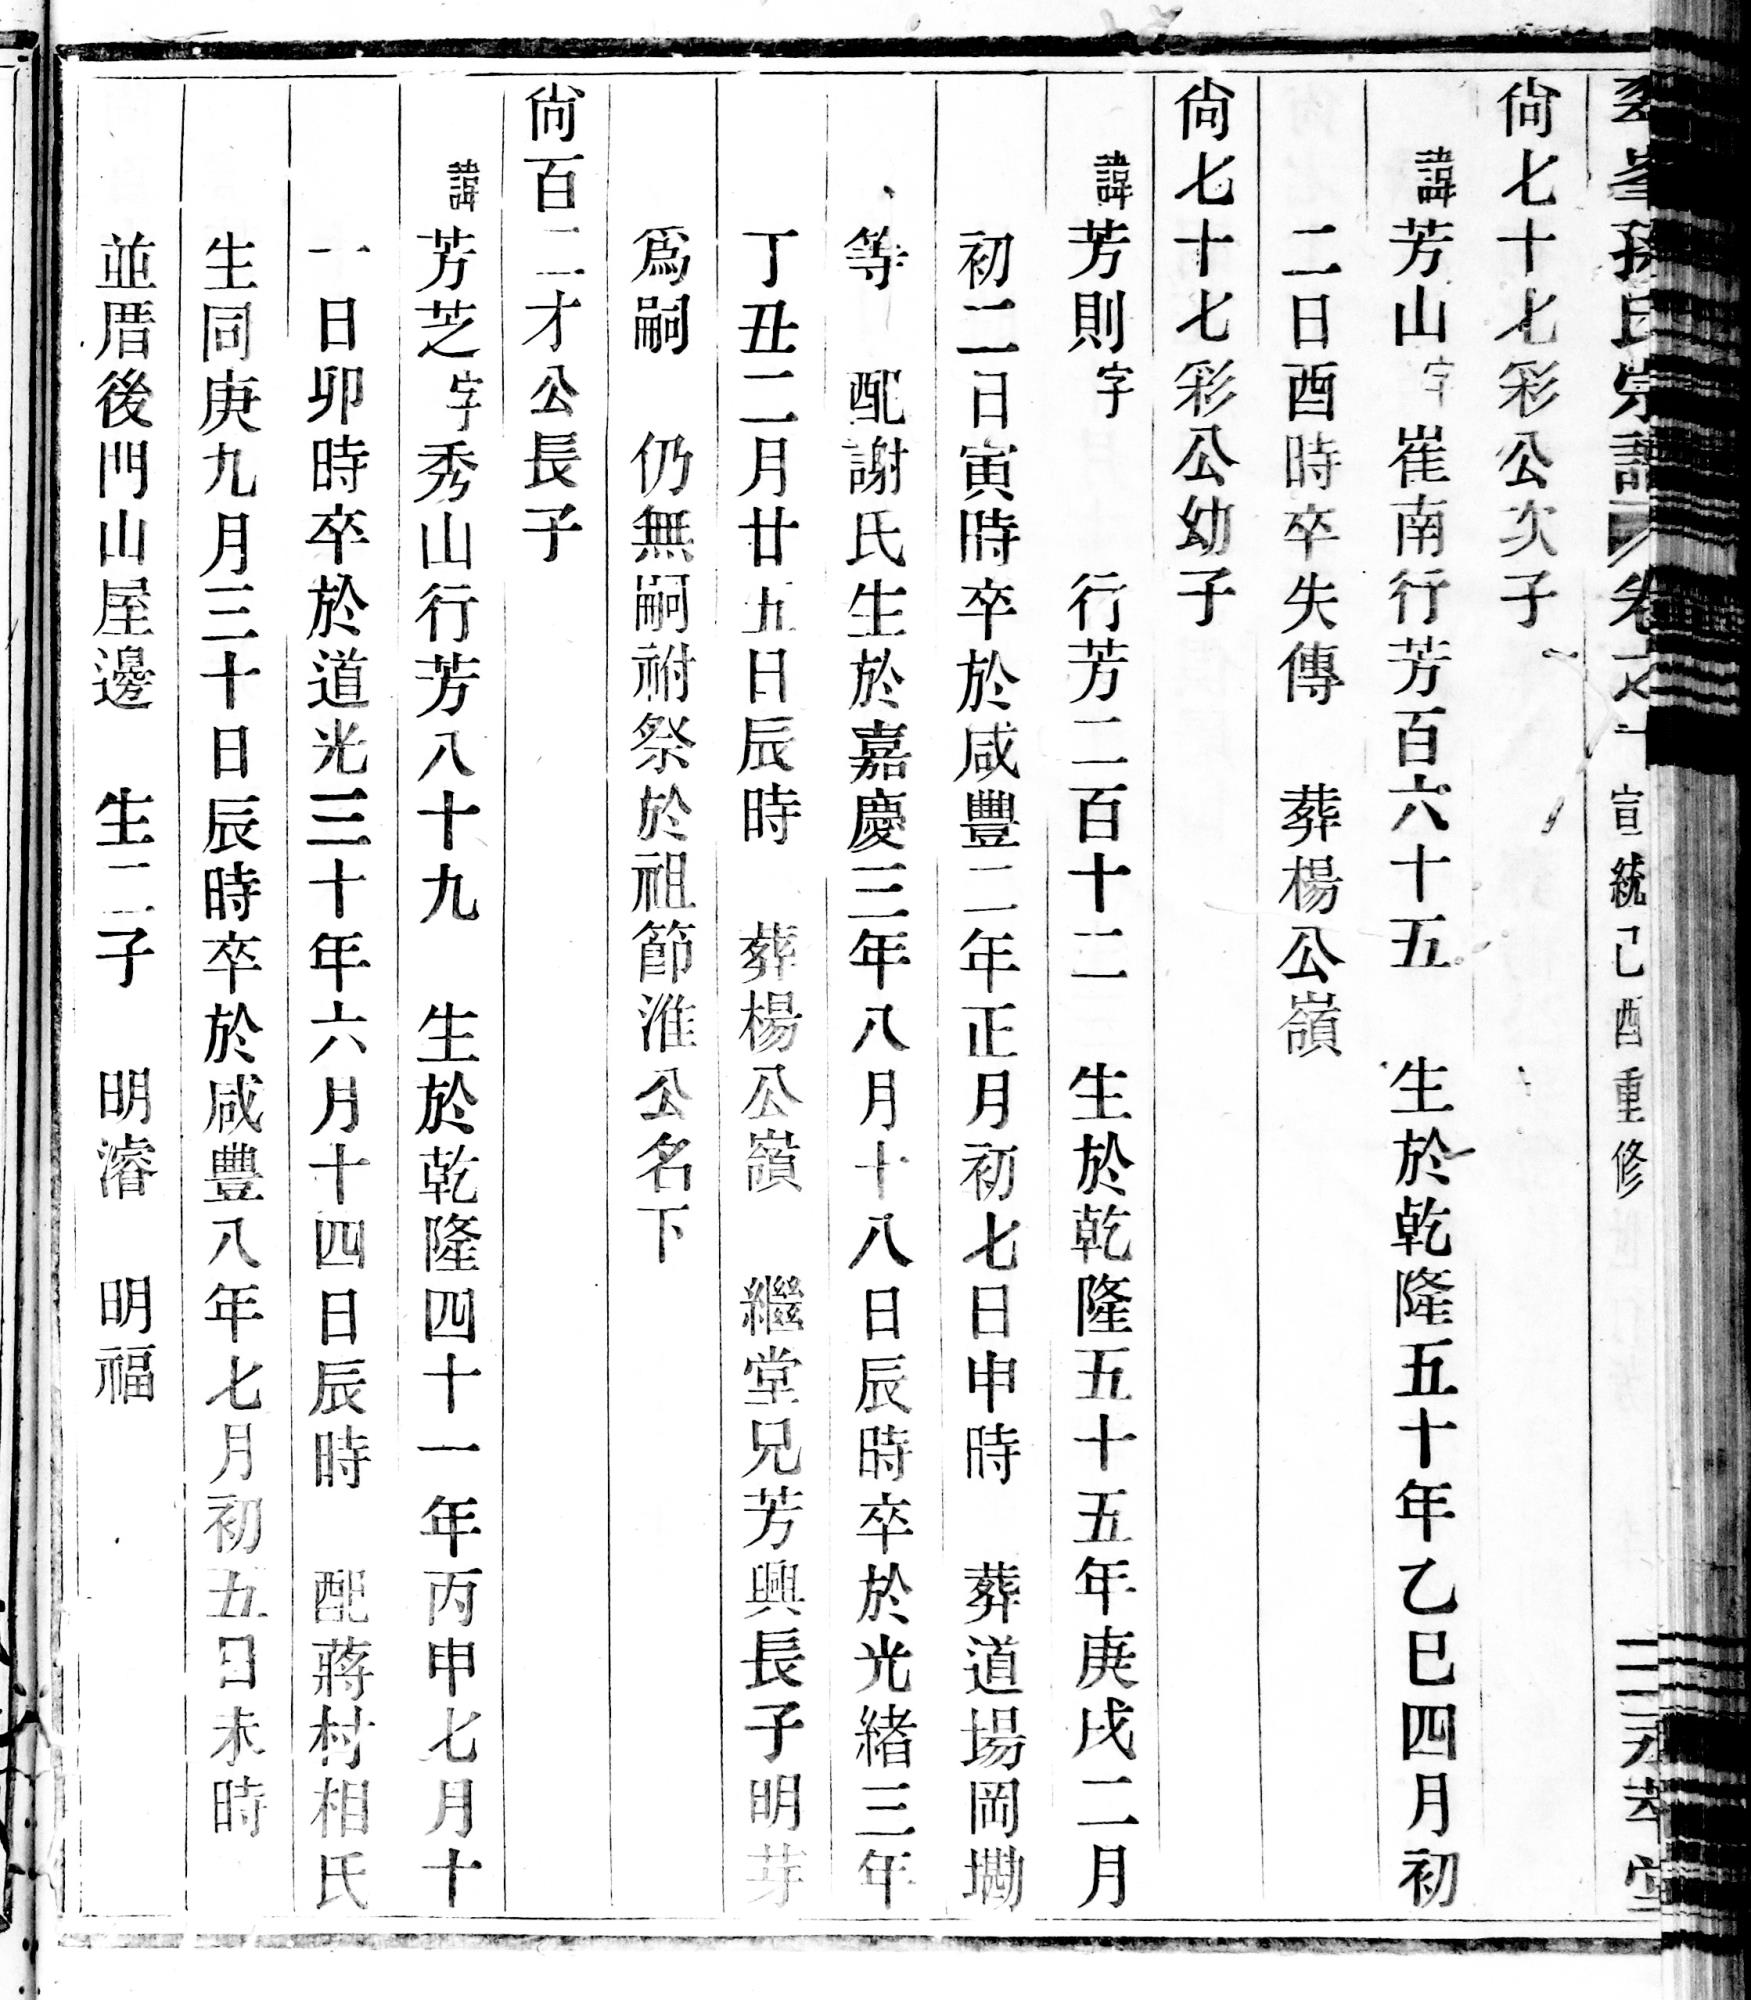 孫氏宗譜 卷之十 宣統己酉重修
尙七十七彩公次子
諱芳山字崔南行芳百六十五 生於乾隆五十年乙巳四月初
二日酉時卒失傳 葬楊公嶺
尙七十七彩公幼子
諱芳則字 行芳二百十二 生於乾隆五十五年庚戌二月
初二日寅時卒於咸豐二年正月初七日申時 葬道場岡墈
等 配謝氏生於嘉慶三年八月十八日辰時卒於光緒三年
丁丑二月廿五日辰時 葬楊公嶺 繼堂兄芳興長子明芽
爲嗣 仍無嗣祔祭於祖節淮公名下
尙百二才公長子
諱芳芝字秀山行芳八十九 生於乾隆四十一年丙申七月十
一日卯時卒於道光三十年六月十四日辰時 配蔣村相氏
生同庚九月三十日辰時卒於咸豐八年七月初五日未時
並厝後門山屋邊 生二子 明濬 明福